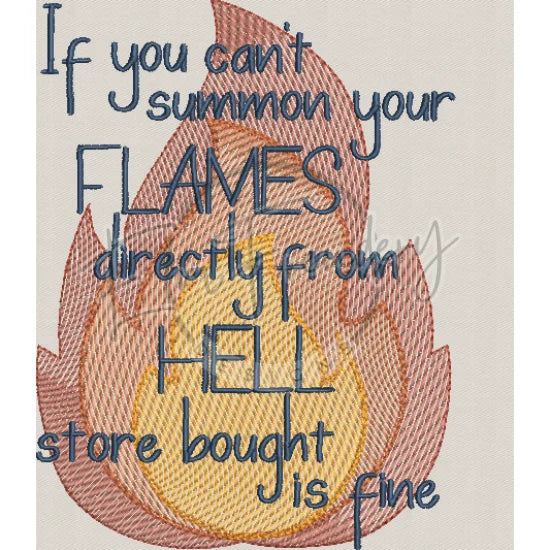 If you can't
summon your
FLAMES
directly from
HELL
store bought
is fine